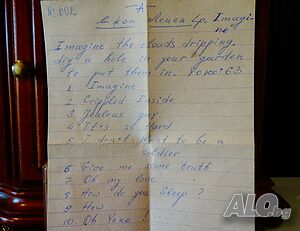 № 602
A
Джон Ленън Lp. Imagi-
ne
Imagine the clouds dripping.
dig a hole in your garden
to put them in. Yoko '63
1 Imagine
2 Crippled Inside
3 Jealous guy
4 It's so Hard
5 I don't want to be a
soldier
6 Give me some truth
7 Oh my love
8 How do you Sleep ?
9 How
10. Oh Yoko !
ALO.bg